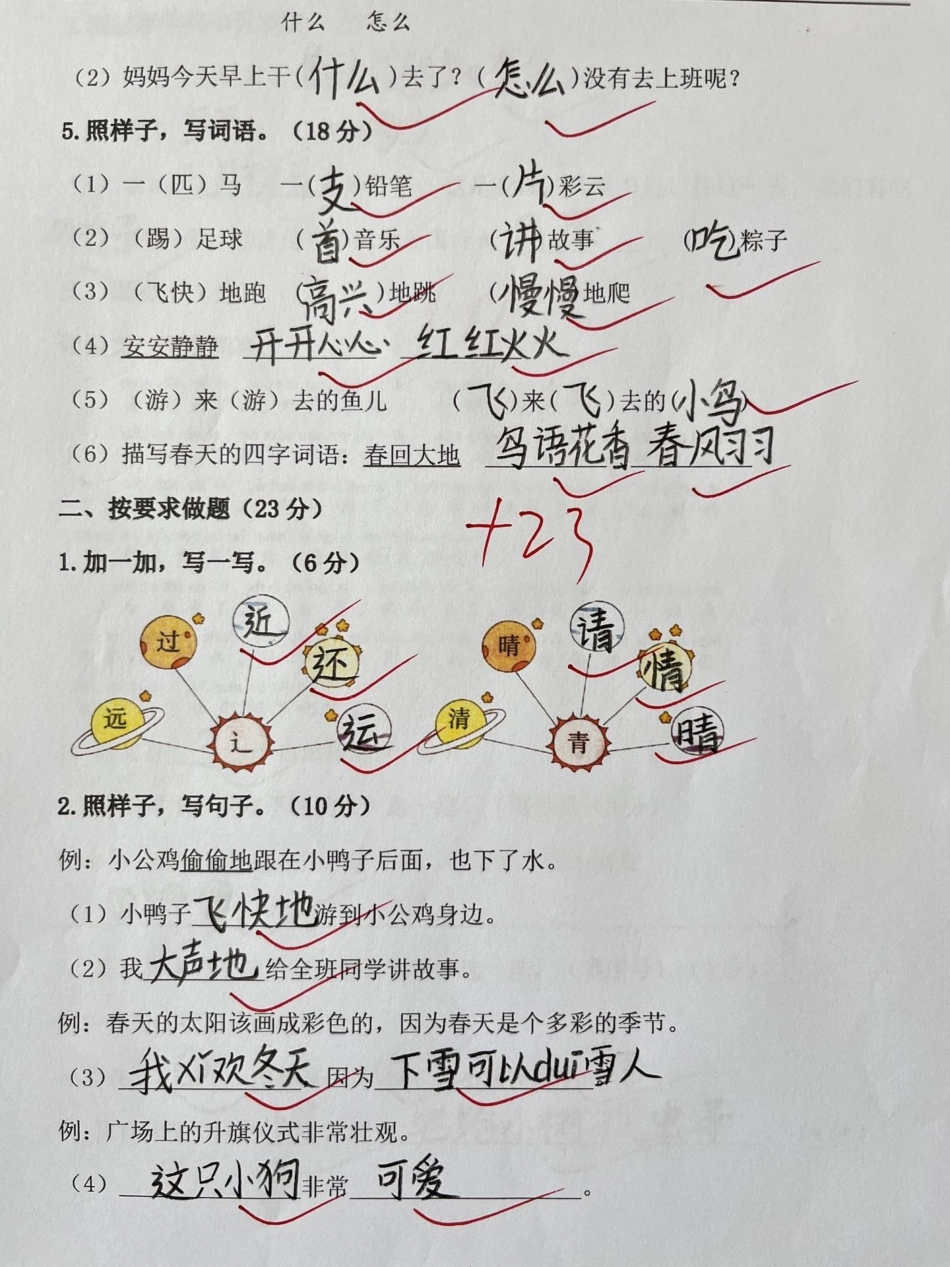 什么 怎么
（2）妈妈今天早上干(什么)去了？(怎么)没有去上班呢？
5.照样子，写词语。（18分）
（1）一（匹）马 一(支)铅笔 一(片)彩云
（2）（踢）足球 (首)音乐 (讲)故事 (吃)粽子
（3）（飞快）地跑 (高兴)地跳 (慢慢)地爬
（4）安安静静 开开心心 红红火火
（5）（游）来（游）去的鱼儿 (飞)来(飞)去的(小鸟)
（6）描写春天的四字词语：春回大地 鸟语花香 春风习习
二、按要求做题（23分）
+23
1.加一加，写一写。（6分）
近 请
过 还 晴 情
远 辶 运 清 青 晴
2.照样子，写句子。（10分）
例：小公鸡偷偷地跟在小鸭子后面，也下了水。
（1）小鸭子飞快地游到小公鸡身边。
（2）我大声地给全班同学讲故事。
例：春天的太阳该画成彩色的，因为春天是个多彩的季节。
（3）我xǐ欢冬天 因为 下雪可以duī雪人
例：广场上的升旗仪式非常壮观。
（4）这只小狗非常 可爱。